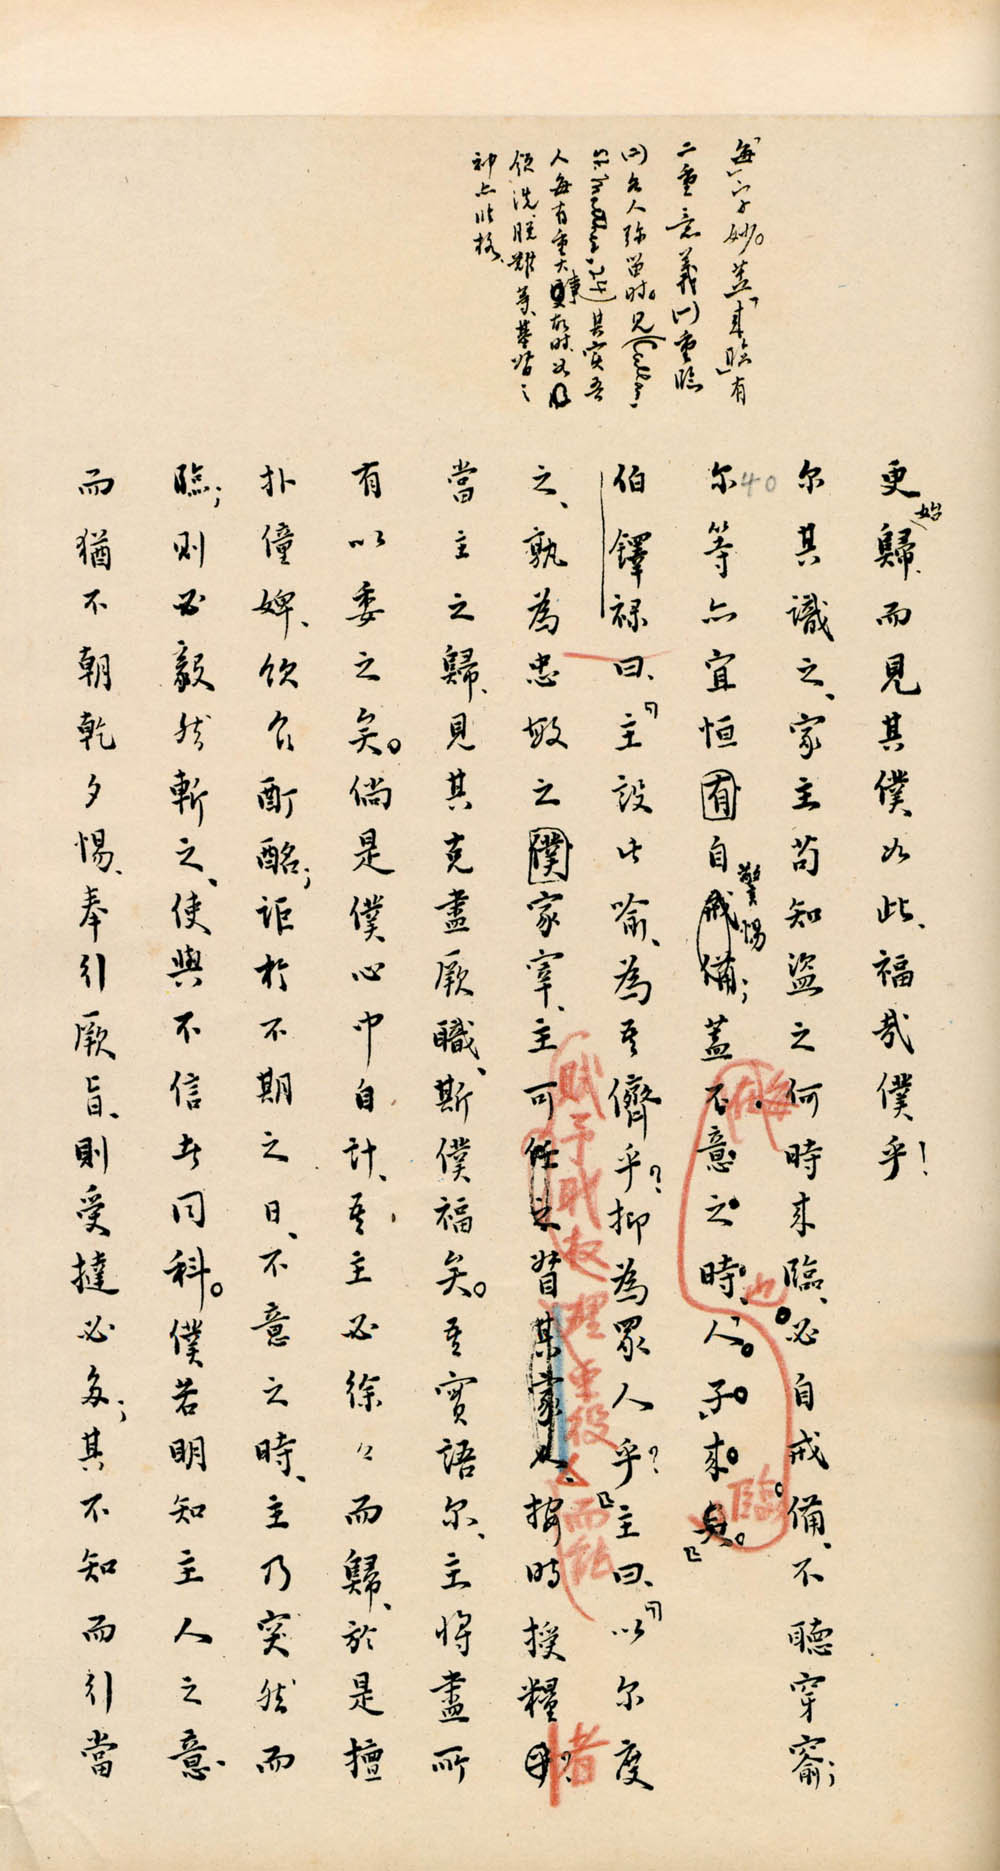 「每」字妙。蓋「來臨」有
二重意義(一)重臨
(二)各人彌留時。見(Callan:
St. Matthew, 24)其實吾
人每有重大事故時如
領洗脫難等基督之
神亦此格
更始歸、而見其僕如此、福哉僕乎!
尔其識之、家主苟知盜之何時來臨、必自戒備、不聽穿窬;
40
尔等亦宜恒有自戒備警惕;蓋不意之時、人子來臭。
每在
也
臨
伯鐸祿曰、「主設此喻、為吾儕乎?抑為眾人乎?」主曰、「以尔度
之、孰為忠敏之僕家宰、主可任之督某家人、按時授糧
賦予職權理重役
而託
者
當主之歸、見其克盡厥職、斯僕福矣。吾實語尔、主將盡所
有以委之矣。倘是僕心中自計、吾主必徐々而歸、於是擅
扑僮婢、飲食酊酩;詎於不期之日、不意之時、主乃突然而
臨;則必毅然斬之、使與不信者同科。僕若明知主人之意
而猶不朝乾夕惕、奉引厥旨、則受撻必多;其不知而引當